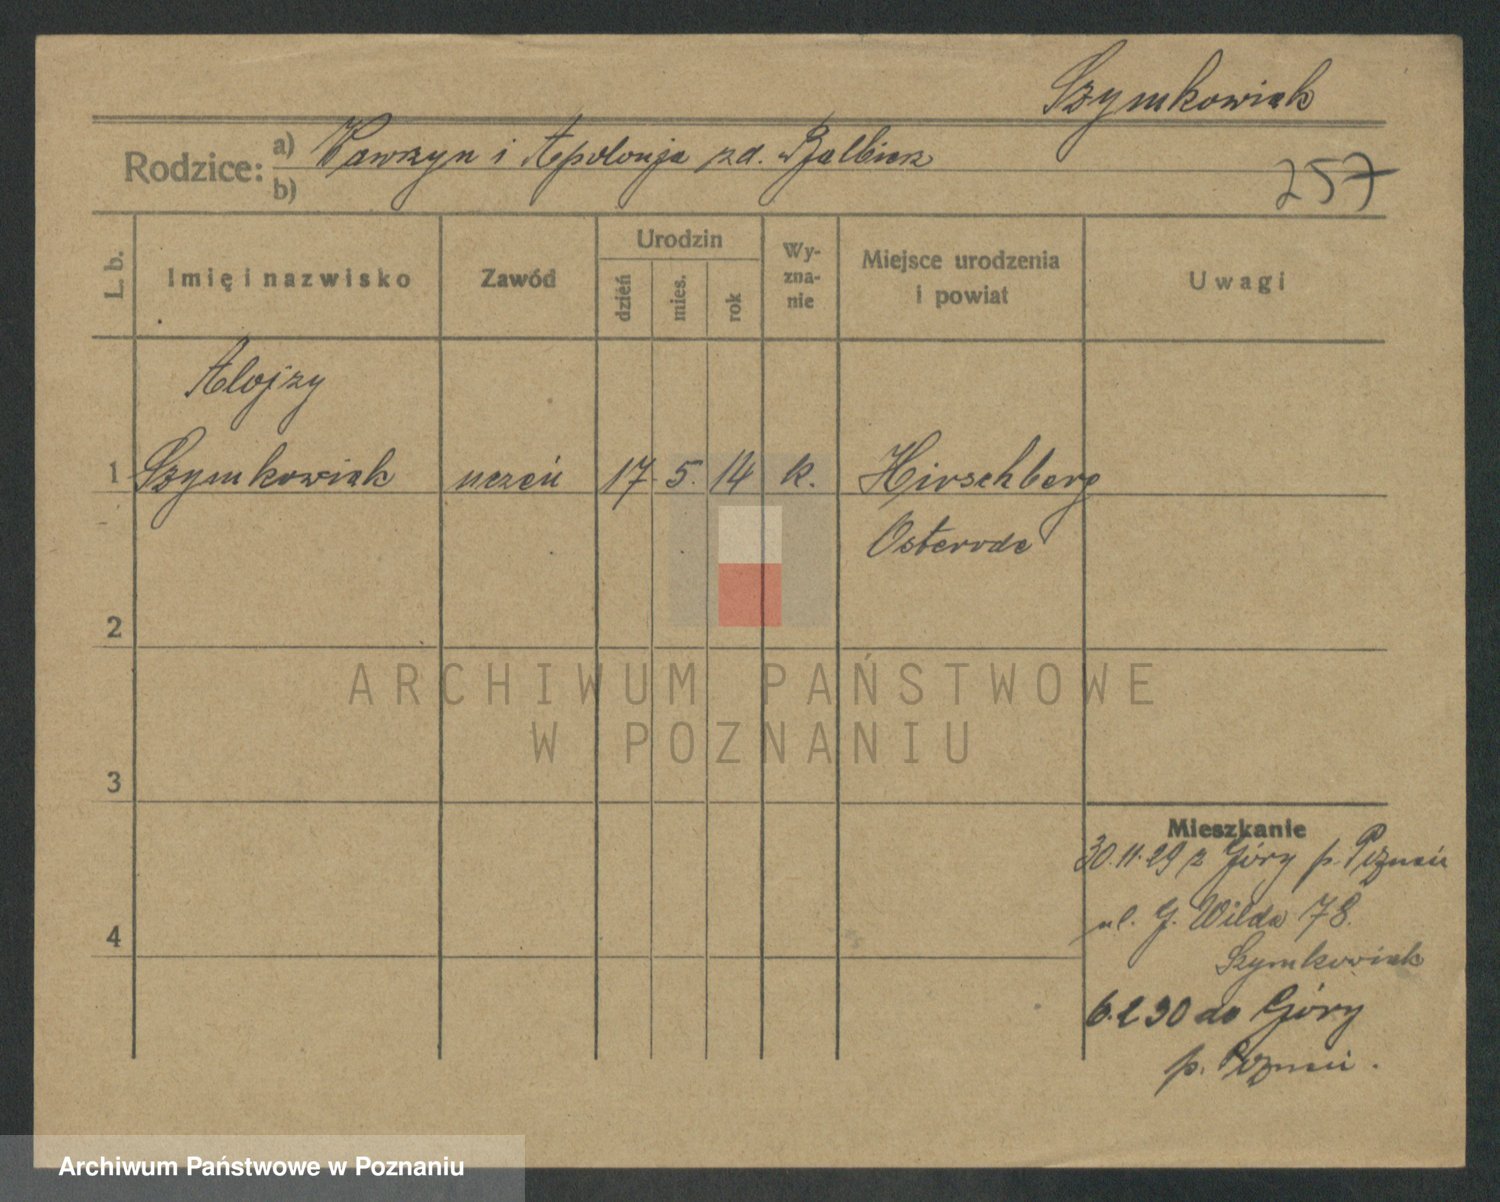 Szymkowiak
Rodzice: a) Wawrzyn i Apolonja zd. Balbierz
b)
257
L. b. Imię i nazwisko Zawód Urodzin dzień mies. rok Wy-zna-nie Miejsce urodzenia i powiat Uwagi
Alojzy
1 Szymkowiak uczeń 17. 5. 14 k. Hirschberg
Osterode
2
ARCHIWUM PAŃSTWOWE
W POZNANIU
3
Mieszkanie
30.11.29 z Góry p. Poznań
ul. G. Wilda 78.
4
Szymkowiak
6.2 30 do Góry
p. Poznań.
Archiwum Państwowe w Poznaniu